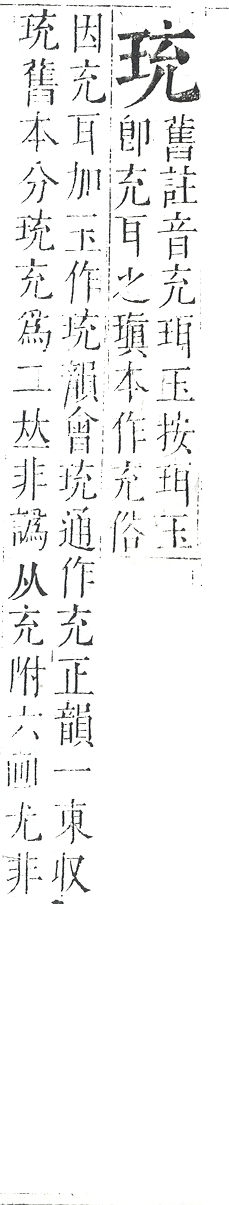 珫
舊註音充珥玉按珥玉
卽充耳之瑱本作充俗
因充耳加玉作珫韻會珫通作充正韻一東収
珫舊本分珫充爲二𠀤非譌从充附六画尤非